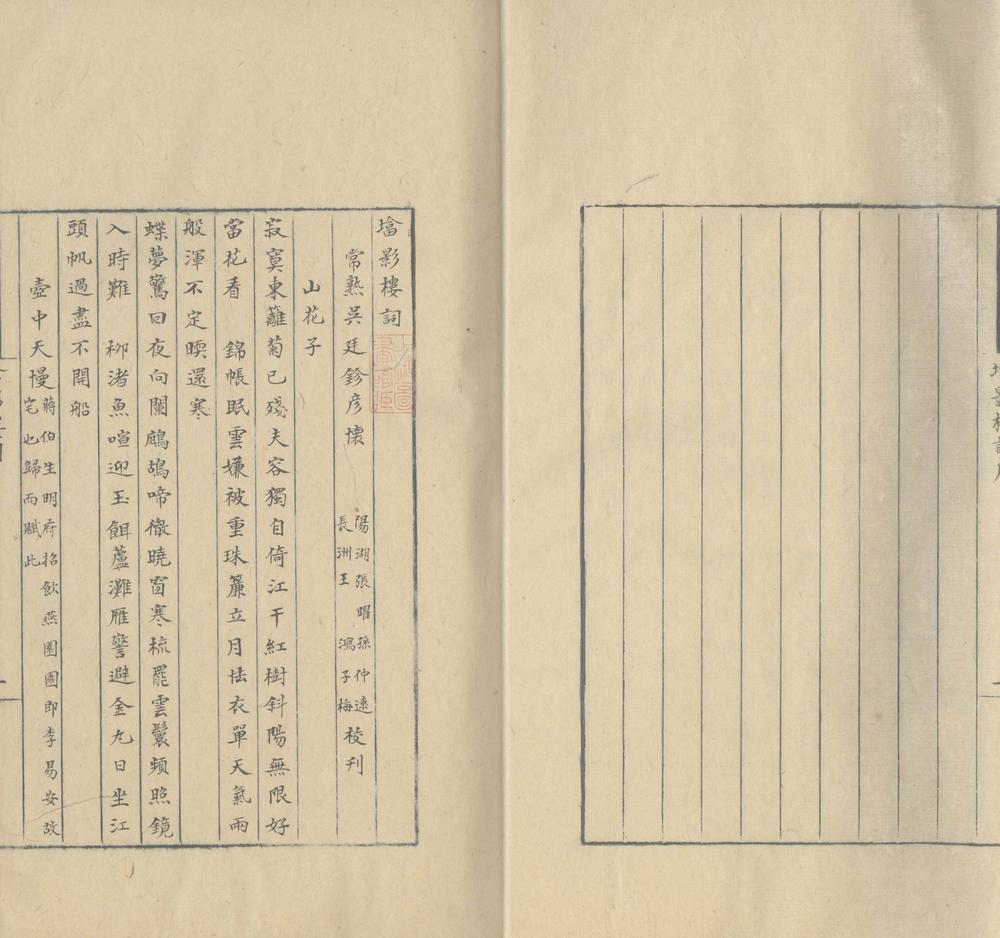 墖影樓詞
常熟吳廷鉁彥懷
陽湖張曜孫仲遠
長洲王鴻子梅
校刋
山花子
寂寞東籬菊已殘夫容獨自倚江干紅樹斜陽無限好
當花看　錦帳眠雲嫌被重珠簾立月怯衣單天氣兩
般渾不定暝還寒
蝶夢驚回夜向闌鷓鴣啼徹曉窗寒梳罷雲鬟頻照鏡
入時難　柳渚魚喧迎玉餌蘆灘雁警避金丸日坐江
頭帆過盡不開船
壺中天慢
蔣伯生明府招飲燕園園即李易安故
宅也歸而賦此